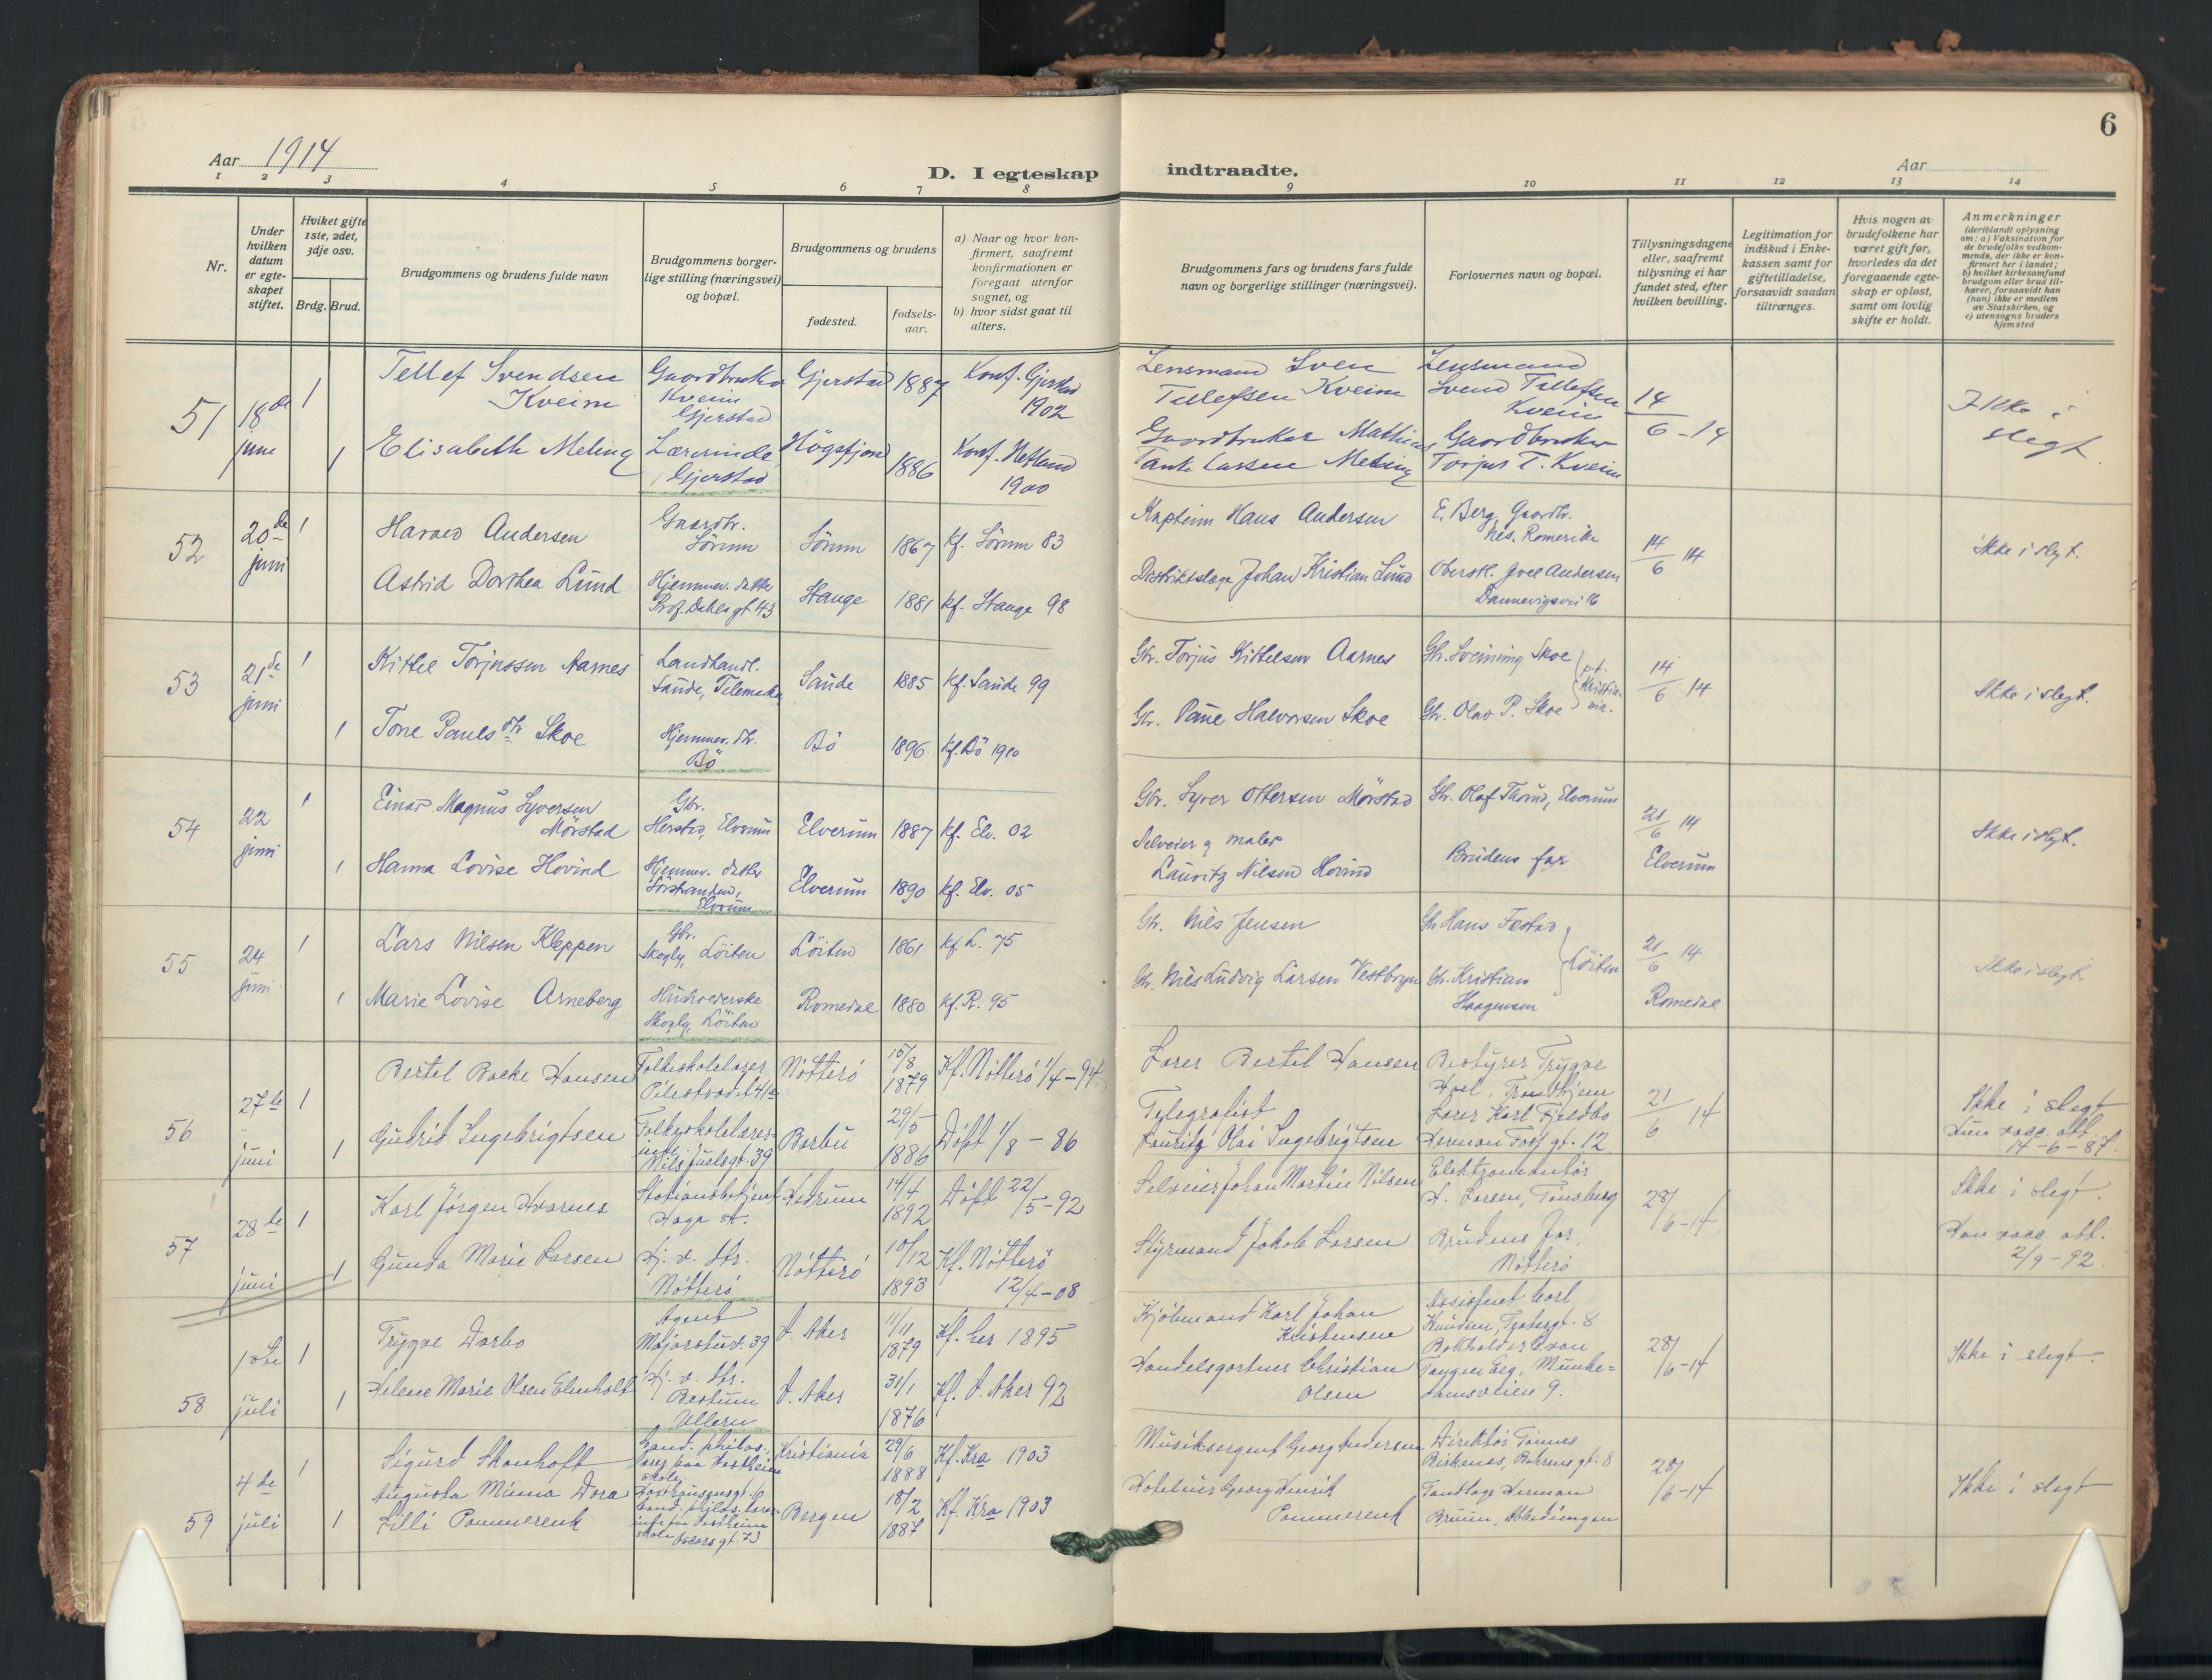 6
Aar 1914
D. I egteskap indtraadte.
Aar
1 2 3 4 5 6 7 8 9 10 11 12 13 14
Nr.
Under hvilken datum er egteskapet stiftet.
Hviket gifte 1ste, 2det, 3dje osv.
Brdg. Brud.
Brudgommens og brudens fulde navn
Brudgommens borgerlige stilling (næringsvei) og bopæl.
Brudgommens og brudens
fødested.
fødselsaar.
a) Naar og hvor konfirmert, saafremt konfirmationen er foregaat utenfor sognet, og
b) hvor sidst gaat til alters.
Brudgommens fars og brudens fars fulde navn og borgerlige stillinger (næringsvei).
Forlovernes navn og bopæl.
Tillysningsdagene eller, saafremt tillysning ei har fundet sted, efter hvilken bevilling.
Legitimation for indskud i Enkekassen samt for giftetilladelse, forsaavidt saadan tiltrænges.
Hvis nogen av brudefolkene har været gift før, hvorledes da det foregaaende egteskap er opløst, samt om lovlig skifte er holdt.
Anmerkninger (deriblandt oplysning om: a) Vaksination for de brudefolks vedkommende, der ikke er konfirmert her i landet; b) hvilket kirkesamfund brudgom eller brud tilhører, forsaavidt han (hun) ikke er medlem av Statskirken, og c) utensogns bruders hjemsted
51 18de juni
1 Tellef Svendsen Kveim Gaardbruker Kveim Gjerstad Gjerstad 1887 Konf. Gjerstad 1902 Lensmand Sven Tellefsen Kveim Lensmand Svend Tellefsen Kveim 14/6-14 Ikke i slegt
1 Elisabeth Meling Lærerinde, Gjerstad Högsfjord 1886 Konf. Hetland 1900 Gaardbruker Mathias Tank Larsen Meling Gaardbruker Torjus T. Kveim
52 20de juni
1 Harald Andersen Gaardbr. Sörum Sörum 1867 Kf. Sörum 83 Kaptein Hans Andersen E. Berg, Gaardbr. Nes. Romerike 14/6 14 Ikke i slegt.
Astrid Dorthea Lund Hjemmev. datter Prof. Dahls gt. 43 Stange 1881 kf. Stange 98 Distriktslæge Johan Kristian Lund Oberstl. Joel Andersen Dannevigsvei 16
53 21de juni
1 Kittel Torjussen Aarnes Landhandl. Saude, Telemarken Saude 1885 Kf. Saude 99 Gbr. Torjus Kittelsen Aarnes Gbr. Sveinung Skoe p.t. Kristiania. 14/6 14 Ikke i slegt.
1 Tone Paulsdtr Skoe Hjemmev. dtr. Bö Bö 1896 Kf. Bö 1910 Gbr. Paul Halvorsen Skoe Gbr. Olav P. Skoe
54 22 juni
1 Einar Magnus Syversen Mörstad Gbr. Herstad, Elverum Elverum 1887 Kf. Elv. 02 Gbr. Syver Ottersen Mörstad Gbr. Olaf Thorud, Elverum 21/6 14 Elverum Ikke i slegt.
1 Hanna Lovise Hovind Hjemmev. datter Sörstranden, Elverum Elverum 1890 kf. Elv. 05 Selveier og maler Lauritz Nilsen Hovind Brudens far
55 24 juni
1 Lars Nilsen Kleppen Gbr. Skogly, Löiten Löiten 1861 kf L. 75 Gbr. Nils Jensen Gbr Hans Festad Löiten 21/6 14 Romedal Ikke i slegt.
1 Marie Lovise Arneberg Husholderske Skogly, Löiten Romedal 1880 kf. R. 95 Gbr. Nils Ludvig Larsen Vestbryn Gbr. Kristian Haagensen
56 27de juni
1 Bertel Hansen Folkeskolelærer Nötterö 15/8 1879 Kf. Nötterö 1/4-94 Lærer Bertel Hansen Bestyrer Trygve Hoel, Trondhjem 21/6 14 Ikke i slegt
1 Gudrid Ingebrigtsen Folkeskolelærerinde Nils Juelsgt. 39 Barbu 29/5 1886 Döpt 1/8-86 Telegrafist Lauritz Olai Ingebrigtsen Lærer Karl Fjeldbo Herman Foss gt. 12 Hun vacc. att. 14-6-87.
57 28de juni
1 Karl Jörgen Hvarnes Stationsbetjent Haga st. Hedrum 14/4 1892 Döpt 22/5-92 Selveier Johan Martin Nilsen Elektromontör H. Larsen, Tönsberg 28/6-14 Ikke i slegt.
1 Gunda Marie Larsen Hj. v. dtr. Nötterö Nötterö 10/12 1893 Kf. Nötterö 12/4-08 Styrmand Jakob Larsen Brudens far, Nötterö Han vacc. att. 2/9-92
58 1ste juli
1 Trygve Darbo Agent Majorstuv. 39 V. Aker 11/11 1879 Kf. her 1895 Kjöbmand Karl Johan Kristensen Assistent Carl Knudsen, 8 28/6-14 Ikke i slegt
1 Helene Marie Olsen Elmholt Hj. v. dtr. Bestum Ullern V. Aker 31/1 1876 Kf. V. Aker 92 Handelsgartner Christian Olsen Bokholder Tangen Eeg, Munkedamsveien 9.
59 4de juli
1 Sigurd Skouhoft Cand. philos., lærer paa Vestheim skole Kristiania 29/6 1888 Kf. Kra 1903 Musiksergent Georg Andersen Direktör Tönnes Birkenes, 8 28/6-14 Ikke i slegt
1 Augusta Minna Dora Lilli Pommerenk Cand. philos. lærerinde paa Vestheim skole Oscarsgt. 73 Bergen 18/2 1887 Kf. Kra 1903 Hoteleier Georg Henrik Pommerenk Tandlæge Herman Bruun, Abbediengen